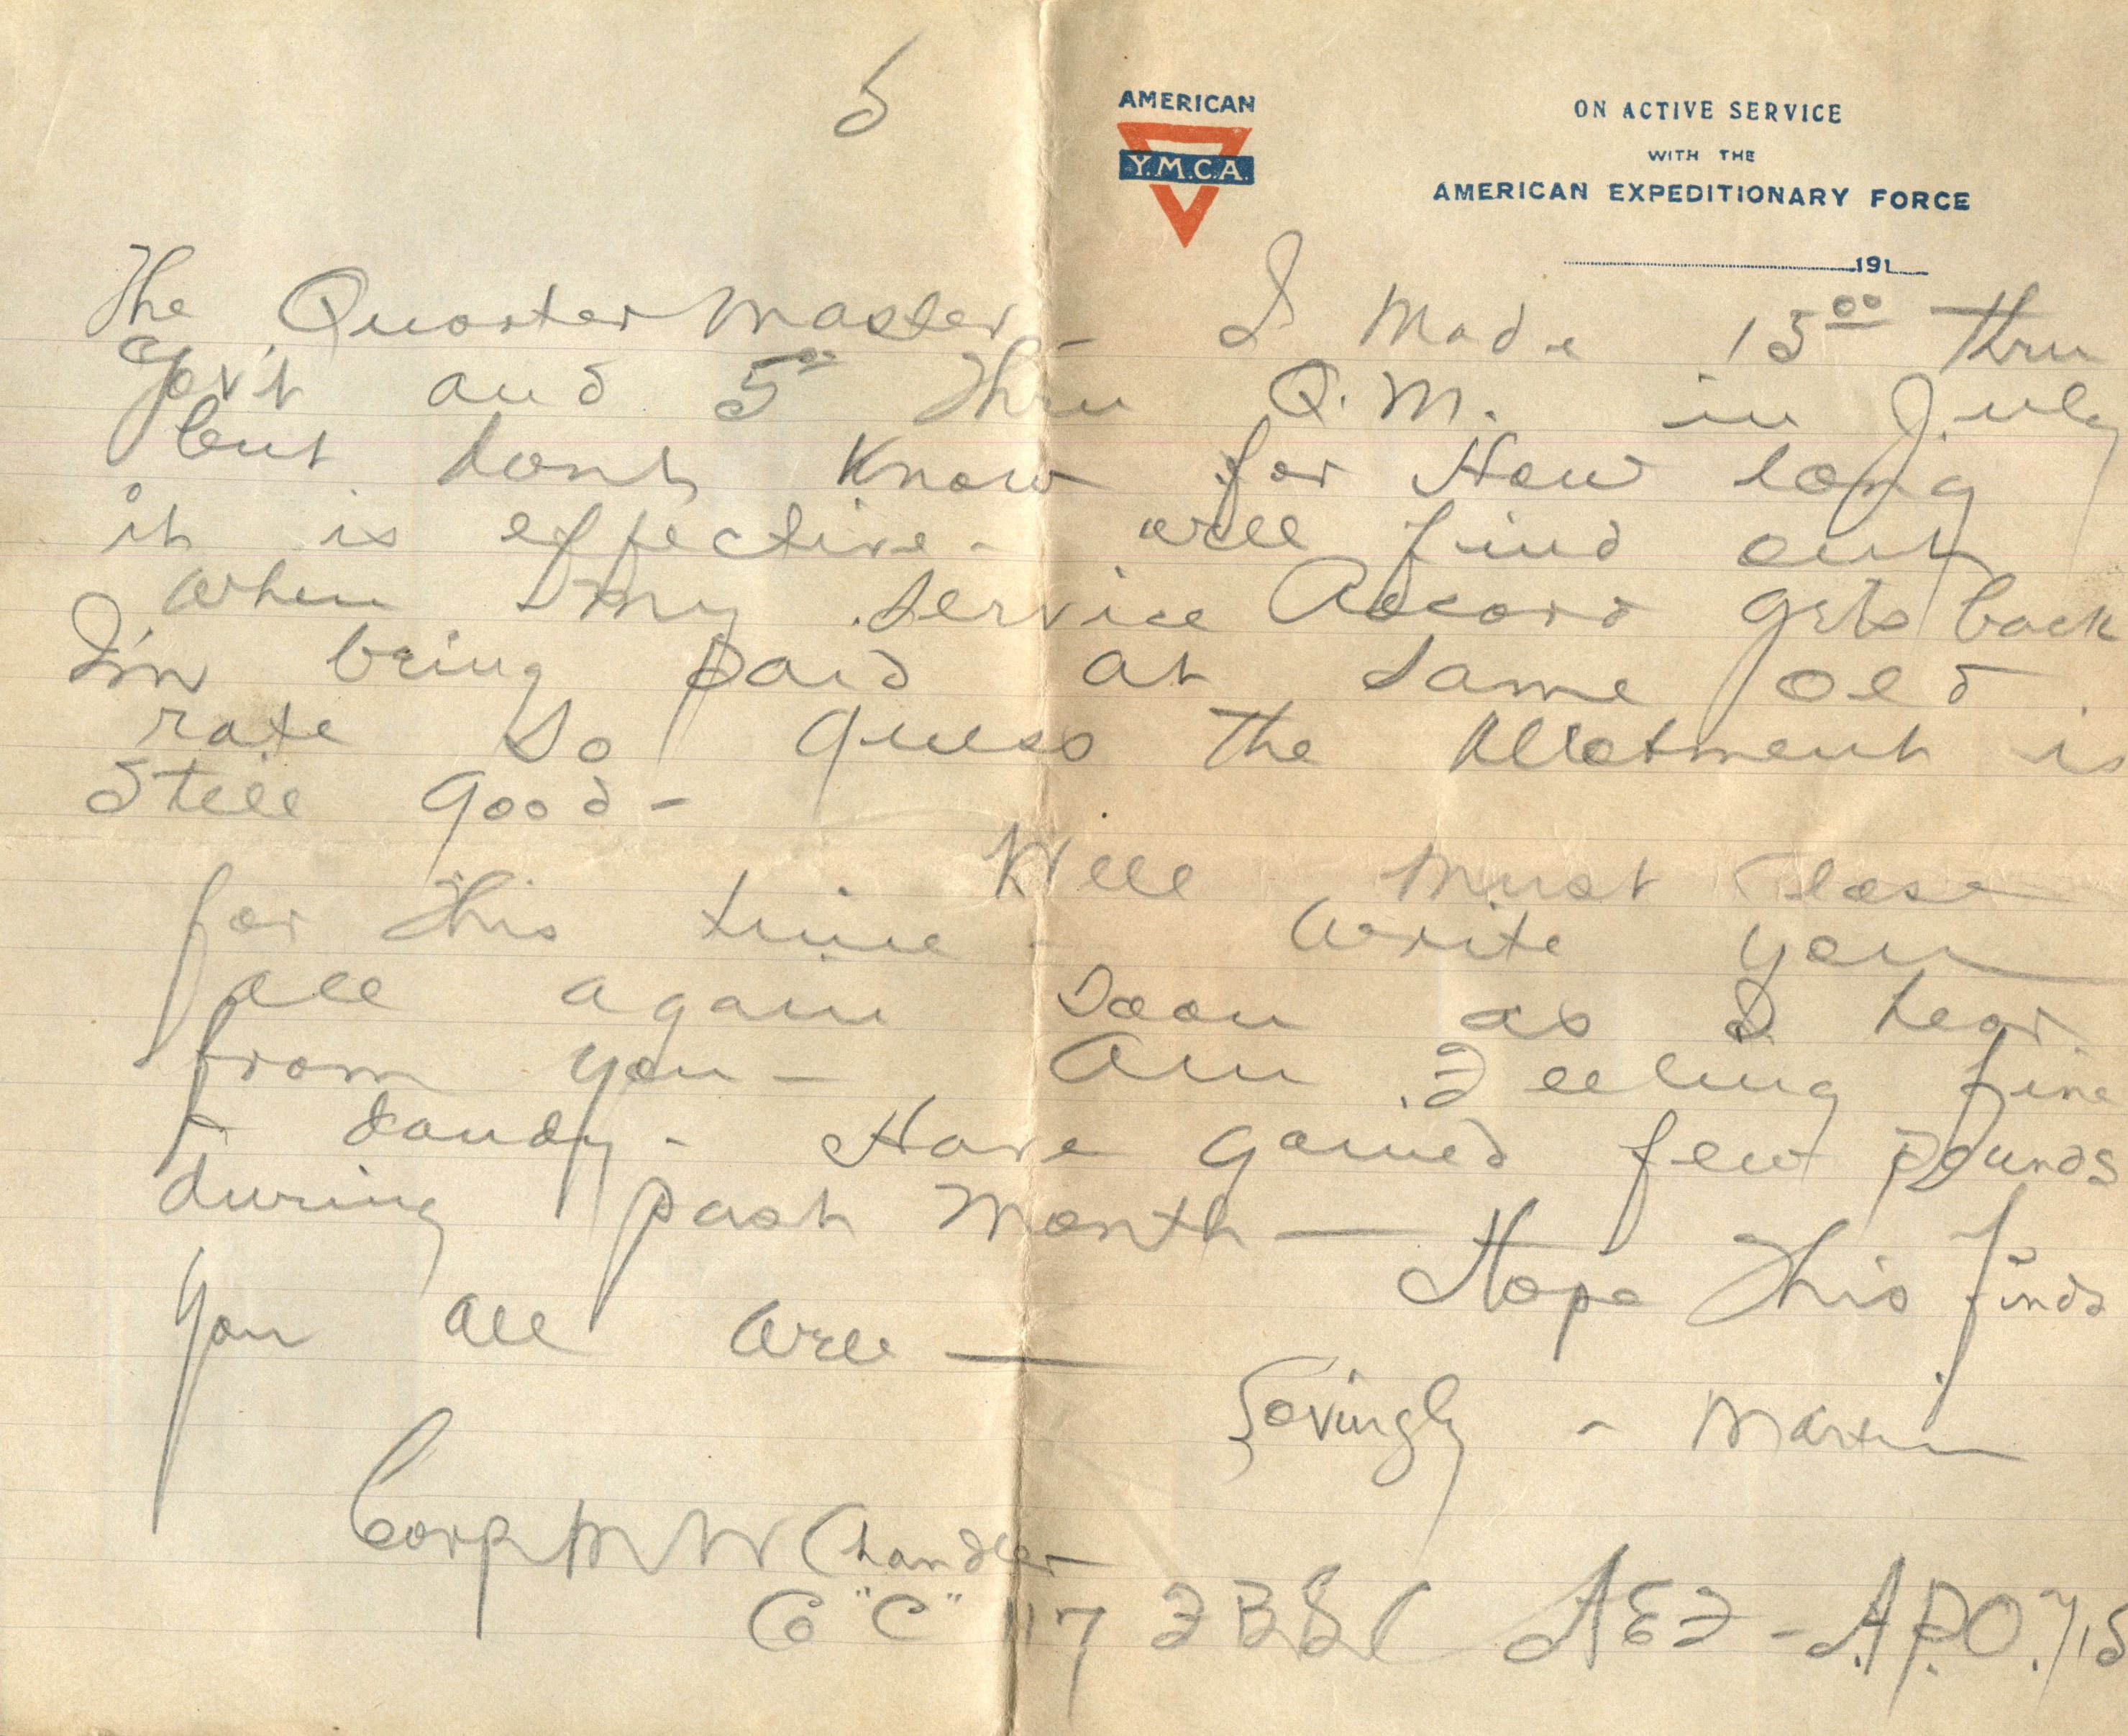 5
AMERICAN
Y.M.C.A.
ON ACTIVE SERVICE
WITH THE
AMERICAN EXPEDITIONARY FORCE
191
The Quartermaster - I Made 15 00 thru
Gov't and 5 00 Thru Q.M. in July
but dont Know for How long
it is effective - will find out
when my service Record gets back
I'm being paid at same old
rate so guess the Allotment is
Still good -
Well must close
for this time - write you
all again soon as I hear
from you - Am Feeling fine
& dandy - Have gained few pounds
during past month — Hope This finds
you all well —
Lovingly - Martin
Corp M W Chandler
Co "C" 117 F B S C A E F - A.P.O. 715